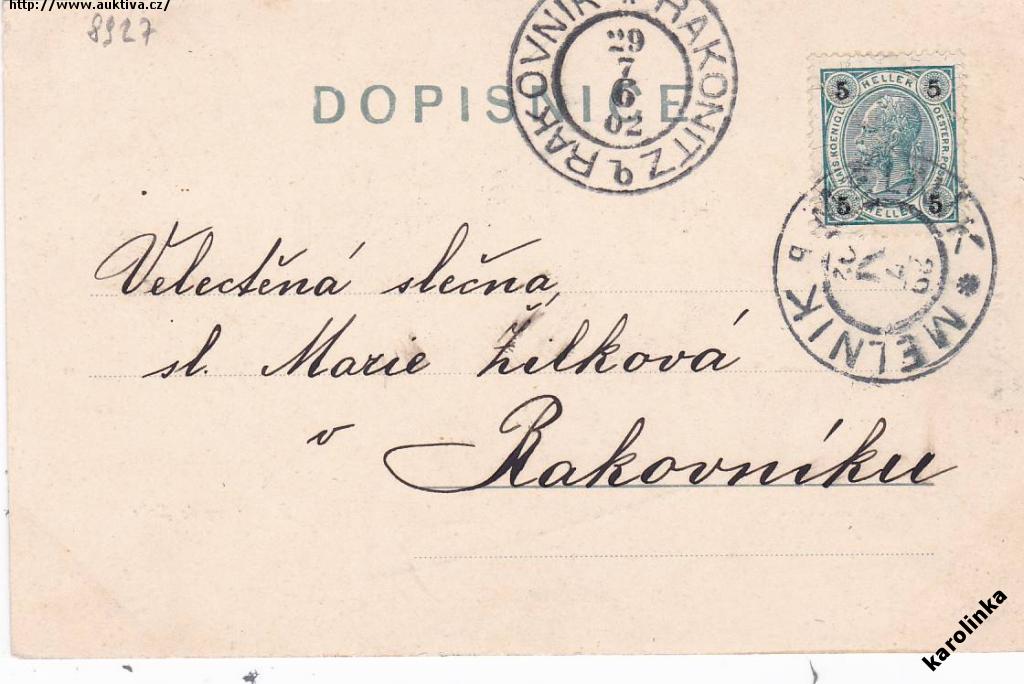 http://www.auktiva.cz/
8927
DOPISNICE
RAKOVNIK * RAKONITZ
29
7
6
02
5 HELLER 5
KAIS. KOENIGL. OESTERR. POST
5 HELLER 5
MELNIK * MELNIK b
Velectěná slečna,
sl. Marie Žilková
v Rakovníku
karolinka